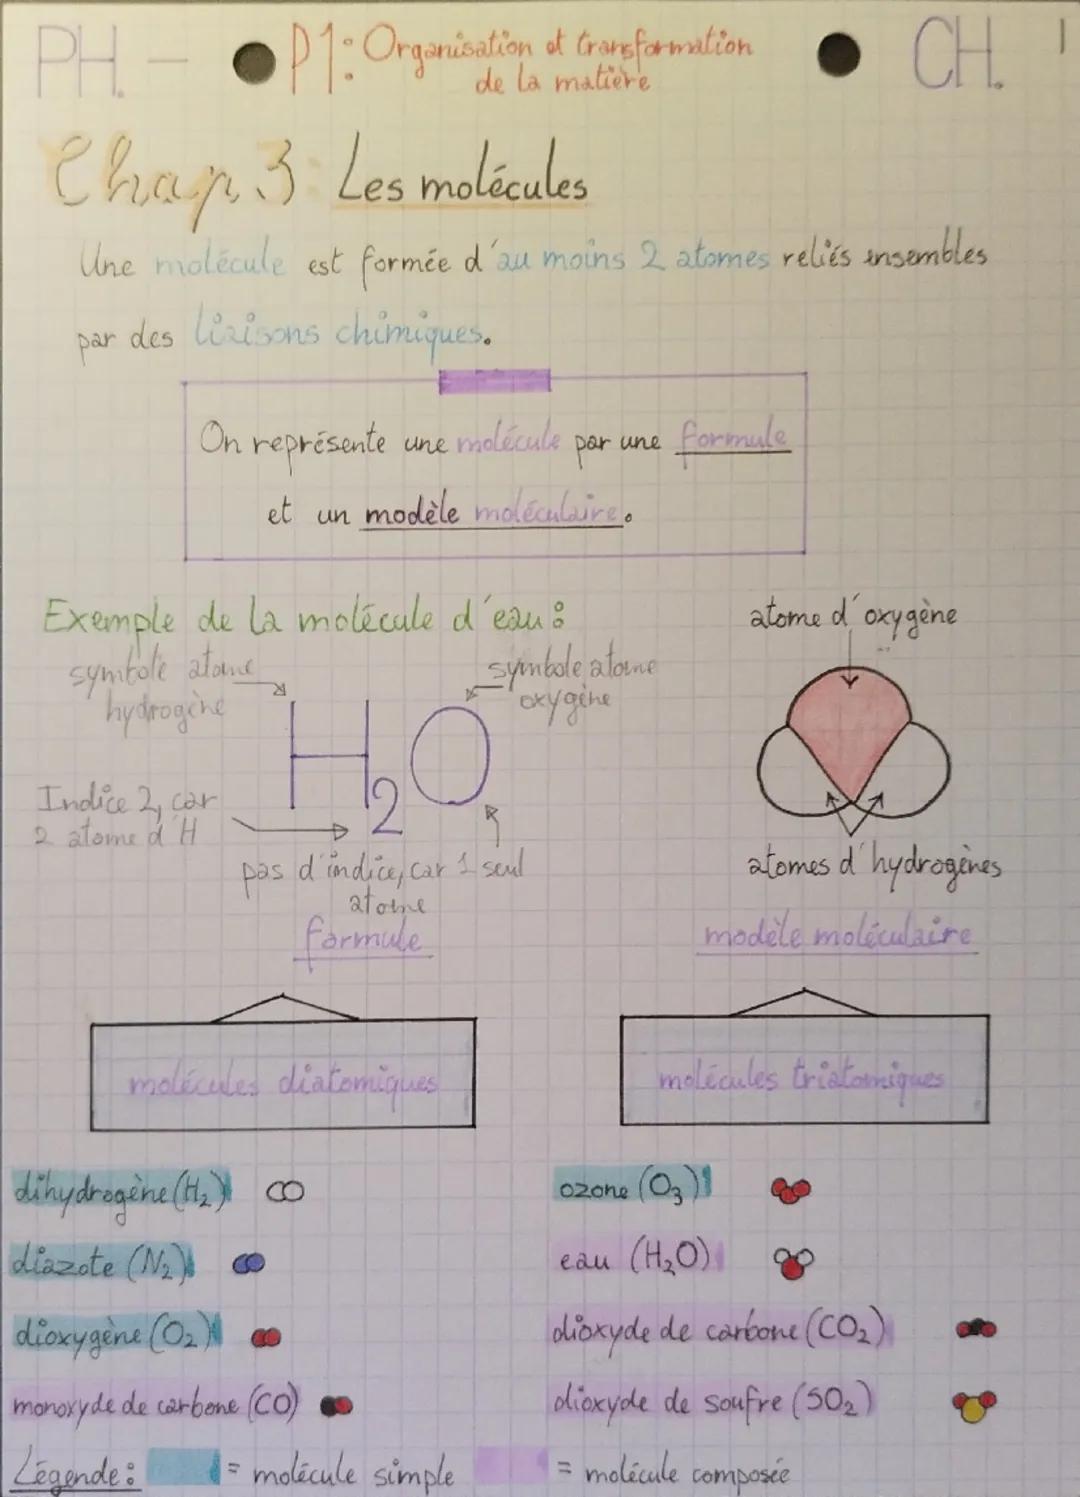 PH. - P1: Organisation et transformation CH. 1
de la matière
Chap. 3: Les molécules
Une molécule est formée d'au moins 2 atomes reliés ensembles
par des liaisons chimiques.
On représente une molécule par une formule
et un modèle moléculaire.
Exemple de la molécule d'eau :
symbole atome
hydrogène
symbole atome
oxygène
H₂O
Indice 2, car
2 atome d'H
pas d'indice, car 1 seul
atome
formule
atome d'oxygène
atomes d'hydrogènes
modèle moléculaire
molécules diatomiques
dihydrogène (H₂)
diazote (N₂)
dioxygène (O₂)
monoxyde de carbone (CO)
molécules triatomiques
ozone (O₃)
eau (H₂O)
dioxyde de carbone (CO₂)
dioxyde de soufre (SO₂)
Légende : = molécule simple = molécule composée